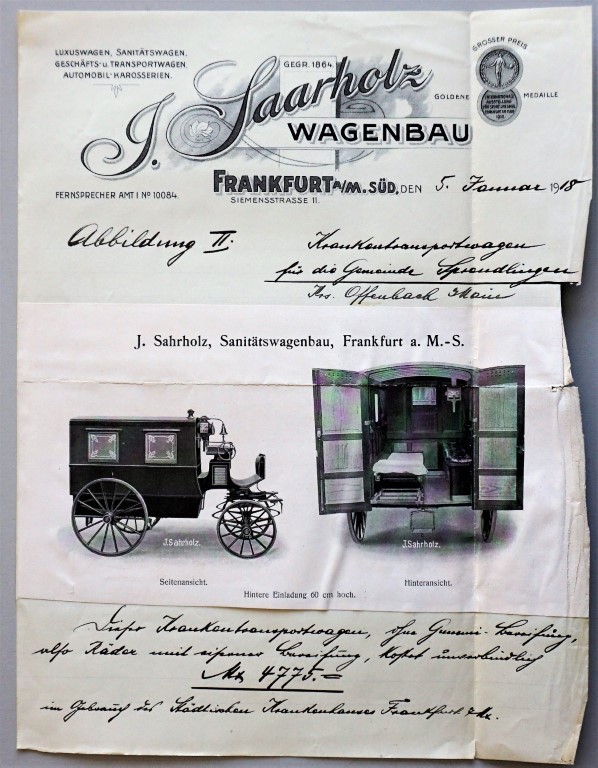 LUXUSWAGEN, SANITÄTSWAGEN,
GESCHÄFTS- U. TRANSPORTWAGEN
AUTOMOBIL-KAROSSERIEN.
GEGR. 1864.
J. Saarholz
WAGENBAU
GROSSER PREIS
GOLDENE MEDAILLE
FRANKFURT A/M. SÜD, DEN 5. Januar 1918
SIEMENSSTRASSE 11.
FERNSPRECHER AMT I No 10084.
Abbildung II.
Krankentransportwagen
für die Gemeinde Sprendlingen
Krs. Offenbach Main
J. Sahrholz, Sanitätswagenbau, Frankfurt a. M.-S.
J.Sahrholz.
J.Sahrholz.
Seitenansicht.
Hinteransicht.
Hintere Einladung 60 cm hoch.
Dieser Krankentransportwagen, ohne Gummi-Bereifung,
also Räder mit eiserner Bereifung, kostet unverbindlich
Mk 4775.=
im Gebrauch des Städtischen Krankenhauses Frankfurt a/M.